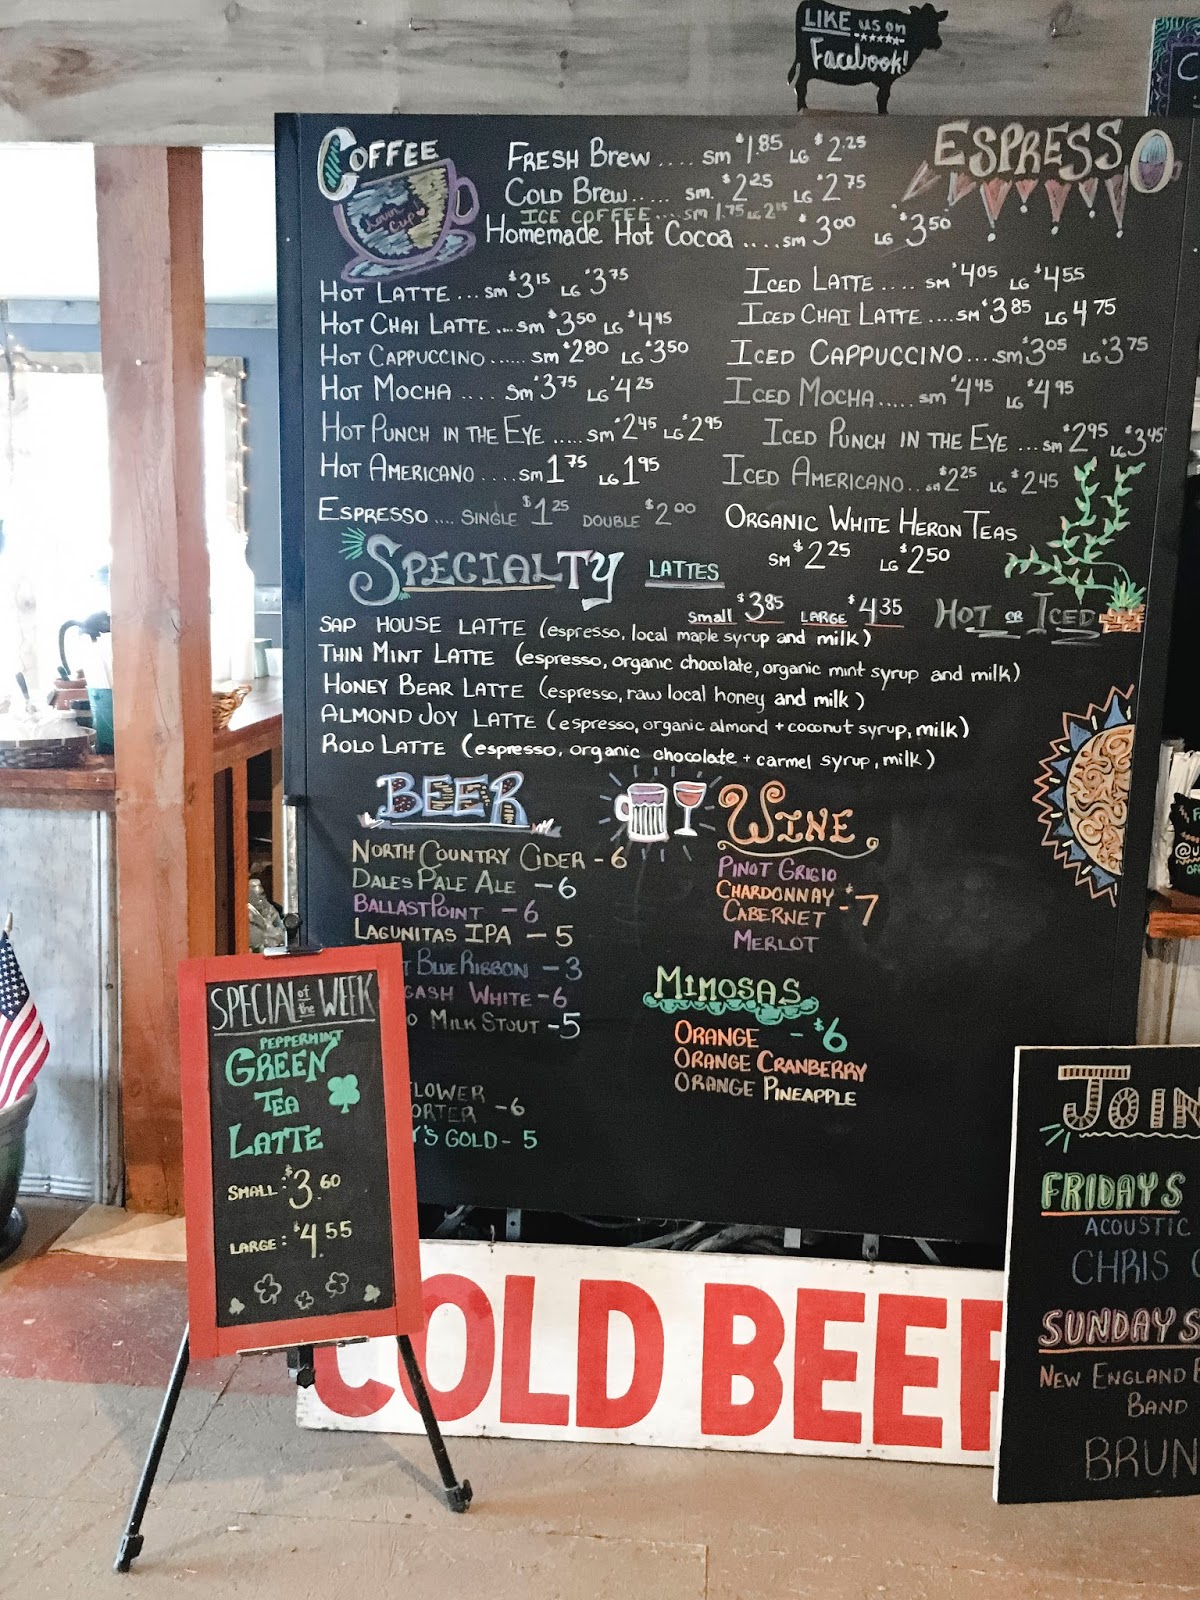 LIKE us on
Facebook!
COFFEE
Lovin Cup
ESPRESSO
FRESH BREW .... SM $1.85 LG $2.25
COLD BREW ..... SM. $2.25 LG $2.75
ICE COFFEE .... SM 1.75 LG 2.15
HOMEMADE HOT COCOA ....SM $3.00 LG $3.50
HOT LATTE ... SM $3.15 LG $3.75
HOT CHAI LATTE ....SM $3.50 LG $4.45
HOT CAPPUCCINO ...... SM $2.80 LG $3.50
HOT MOCHA .... SM $3.75 LG $4.25
HOT PUNCH IN THE EYE ..... SM $2.45 LG $2.95
HOT AMERICANO .....SM 1.75 LG 1.95
ESPRESSO .... SINGLE $1.25 DOUBLE $2.00
ICED LATTE ..... SM $4.05 LG $4.55
ICED CHAI LATTE ....SM $3.85 LG 4.75
ICED CAPPUCCINO....SM $3.05 LG $3.75
ICED MOCHA..... SM $4.45 LG $4.95
ICED PUNCH IN THE EYE ...SM $2.95 LG $3.45
ICED AMERICANO...SM $2.25 LG $2.45
ORGANIC WHITE HERON TEAS
SM $2.25 LG $2.50
SPECIALTY LATTES
small $3.85 LARGE $4.35 HOT OR ICED
SAP HOUSE LATTE (espresso, local maple syrup and milk)
THIN MINT LATTE (espresso, organic chocolate, organic mint syrup and milk)
HONEY BEAR LATTE (espresso, raw local honey and milk)
ALMOND JOY LATTE (espresso, organic almond + coconut syrup, milk)
ROLO LATTE (espresso, organic chocolate + carmel syrup, milk)
BEER
NORTH COUNTRY CIDER - 6
DALES PALE ALE - 6
BALLAST POINT - 6
LAGUNITAS IPA - 5
T BLUE RIBBON - 3
GASH WHITE - 6
O MILK STOUT - 5
LOWER
ORTER - 6
Y'S GOLD - 5
WINE
PINOT GRIGIO
CHARDONNAY
CABERNET
MERLOT
$ - 7
MIMOSAS
ORANGE - $6
ORANGE CRANBERRY
ORANGE PINEAPPLE
SPECIAL of the WEEK
PEPPERMINT
GREEN
TEA
LATTE
SMALL: $3.60
LARGE: $4.55
COLD BEER
JOIN
FRIDAYS
ACOUSTIC
CHRIS
SUNDAYS
NEW ENGLAND
BAND
BRUN